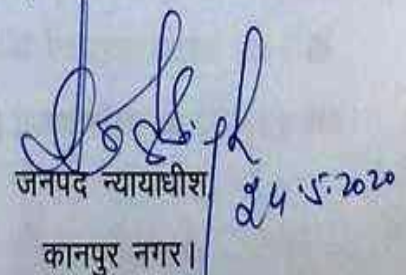 जनपद न्यायाधीश
24.5.2020
कानपुर नगर।